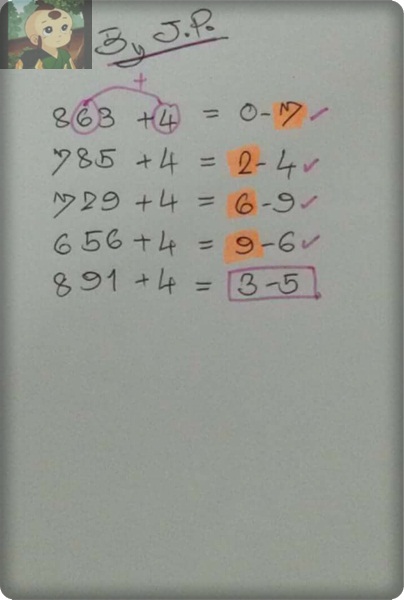 By J.P.
+
863 +4 = 0-7 ✓
785 +4 = 2-4 ✓
729 +4 = 6-9 ✓
656 +4 = 9-6 ✓
891 +4 = 3-5